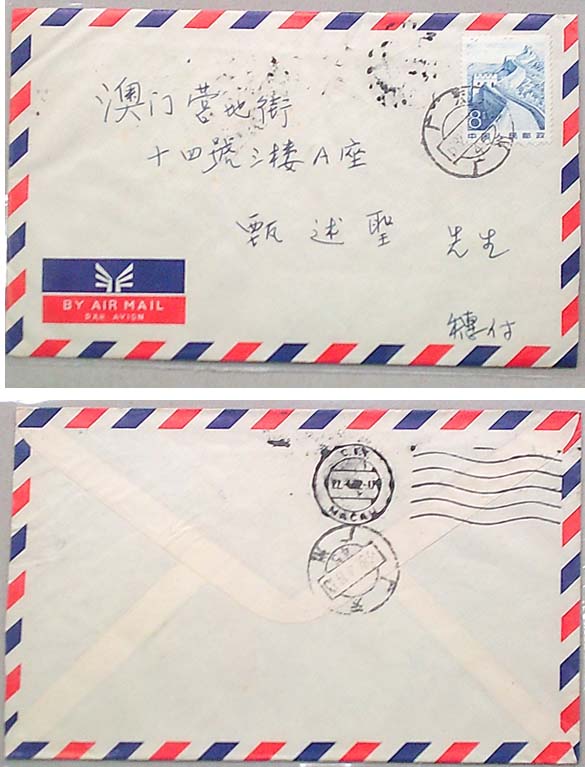 澳门营地街
十四號三楼A座
甄述聖 先生
穗付
8
中国人民邮政
BY AIR MAIL
PAR AVION
C.E.T.
MACAU